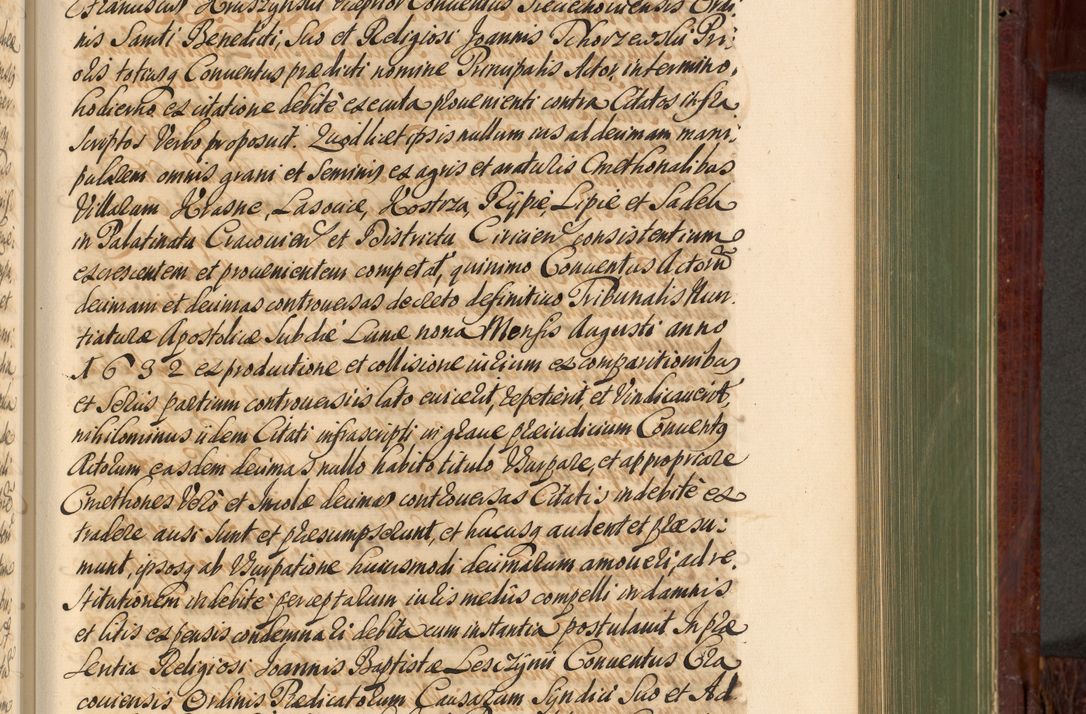 Franciscus Kruszynski Prior Conventus Sieciechoviensis Ordi
nis Sancti Benedicti, Suo et Religiosi Joannis Tchorzewski Pri:
oris totiusq Conuentus prædicti nomine Principalis Actor, in termino,
hodierno ex citatione debitè executa proueniente contra Citatos infra
scriptos Verbo proposuit. Quod licet ipsis nullum ius ad decimam mani
pularem omnis grani et Seminis ex agris et araturis Cmethonalibus
Villarum Krasne, Lasocice, Kostrza, Rÿpie, Lipie et Sadek
in Palatinatu Cracouien et Districtu Ciricien consistentium
excrescentem et prouenientem competat, quinimo Conuentus Actorū
decimam et decimas controuersas decreto definitiuo Tribunalis Nun:
tiaturæ Apostolicæ sub die Lunæ nona Mensis Augusti anno
1632 ex productione et collisione iurium ex comparitionibus
et Seriis partium controuersiis lato euicerit, repetierit, et Vindicauerit
nihilominus iidem Citati infrascripti in graue præiudicium Conuentq
Actorum easdem decimas nullo habito titulo Vsurpare, et appropriare
Cmethones Verò et Incolæ decimas controuersas Citatis indebitè ex
tradere ausi sunt et præsumpserunt, et hucusq audent et præsu:
munt, ipsosq ab Vsurpatione huiusmodi decimarum amoueri, ad re.
stitutionem indebitè perceptarum iuris mediis compelli in damnis
et litis expensis condemnari debita cum instantia postulauit In præ
sentia Religiosi Joannis Baptistæ Leszÿnii Conuentus Cra
couiensis Ordinis Prædicatorum Causarum Sÿndici Suo et Ad